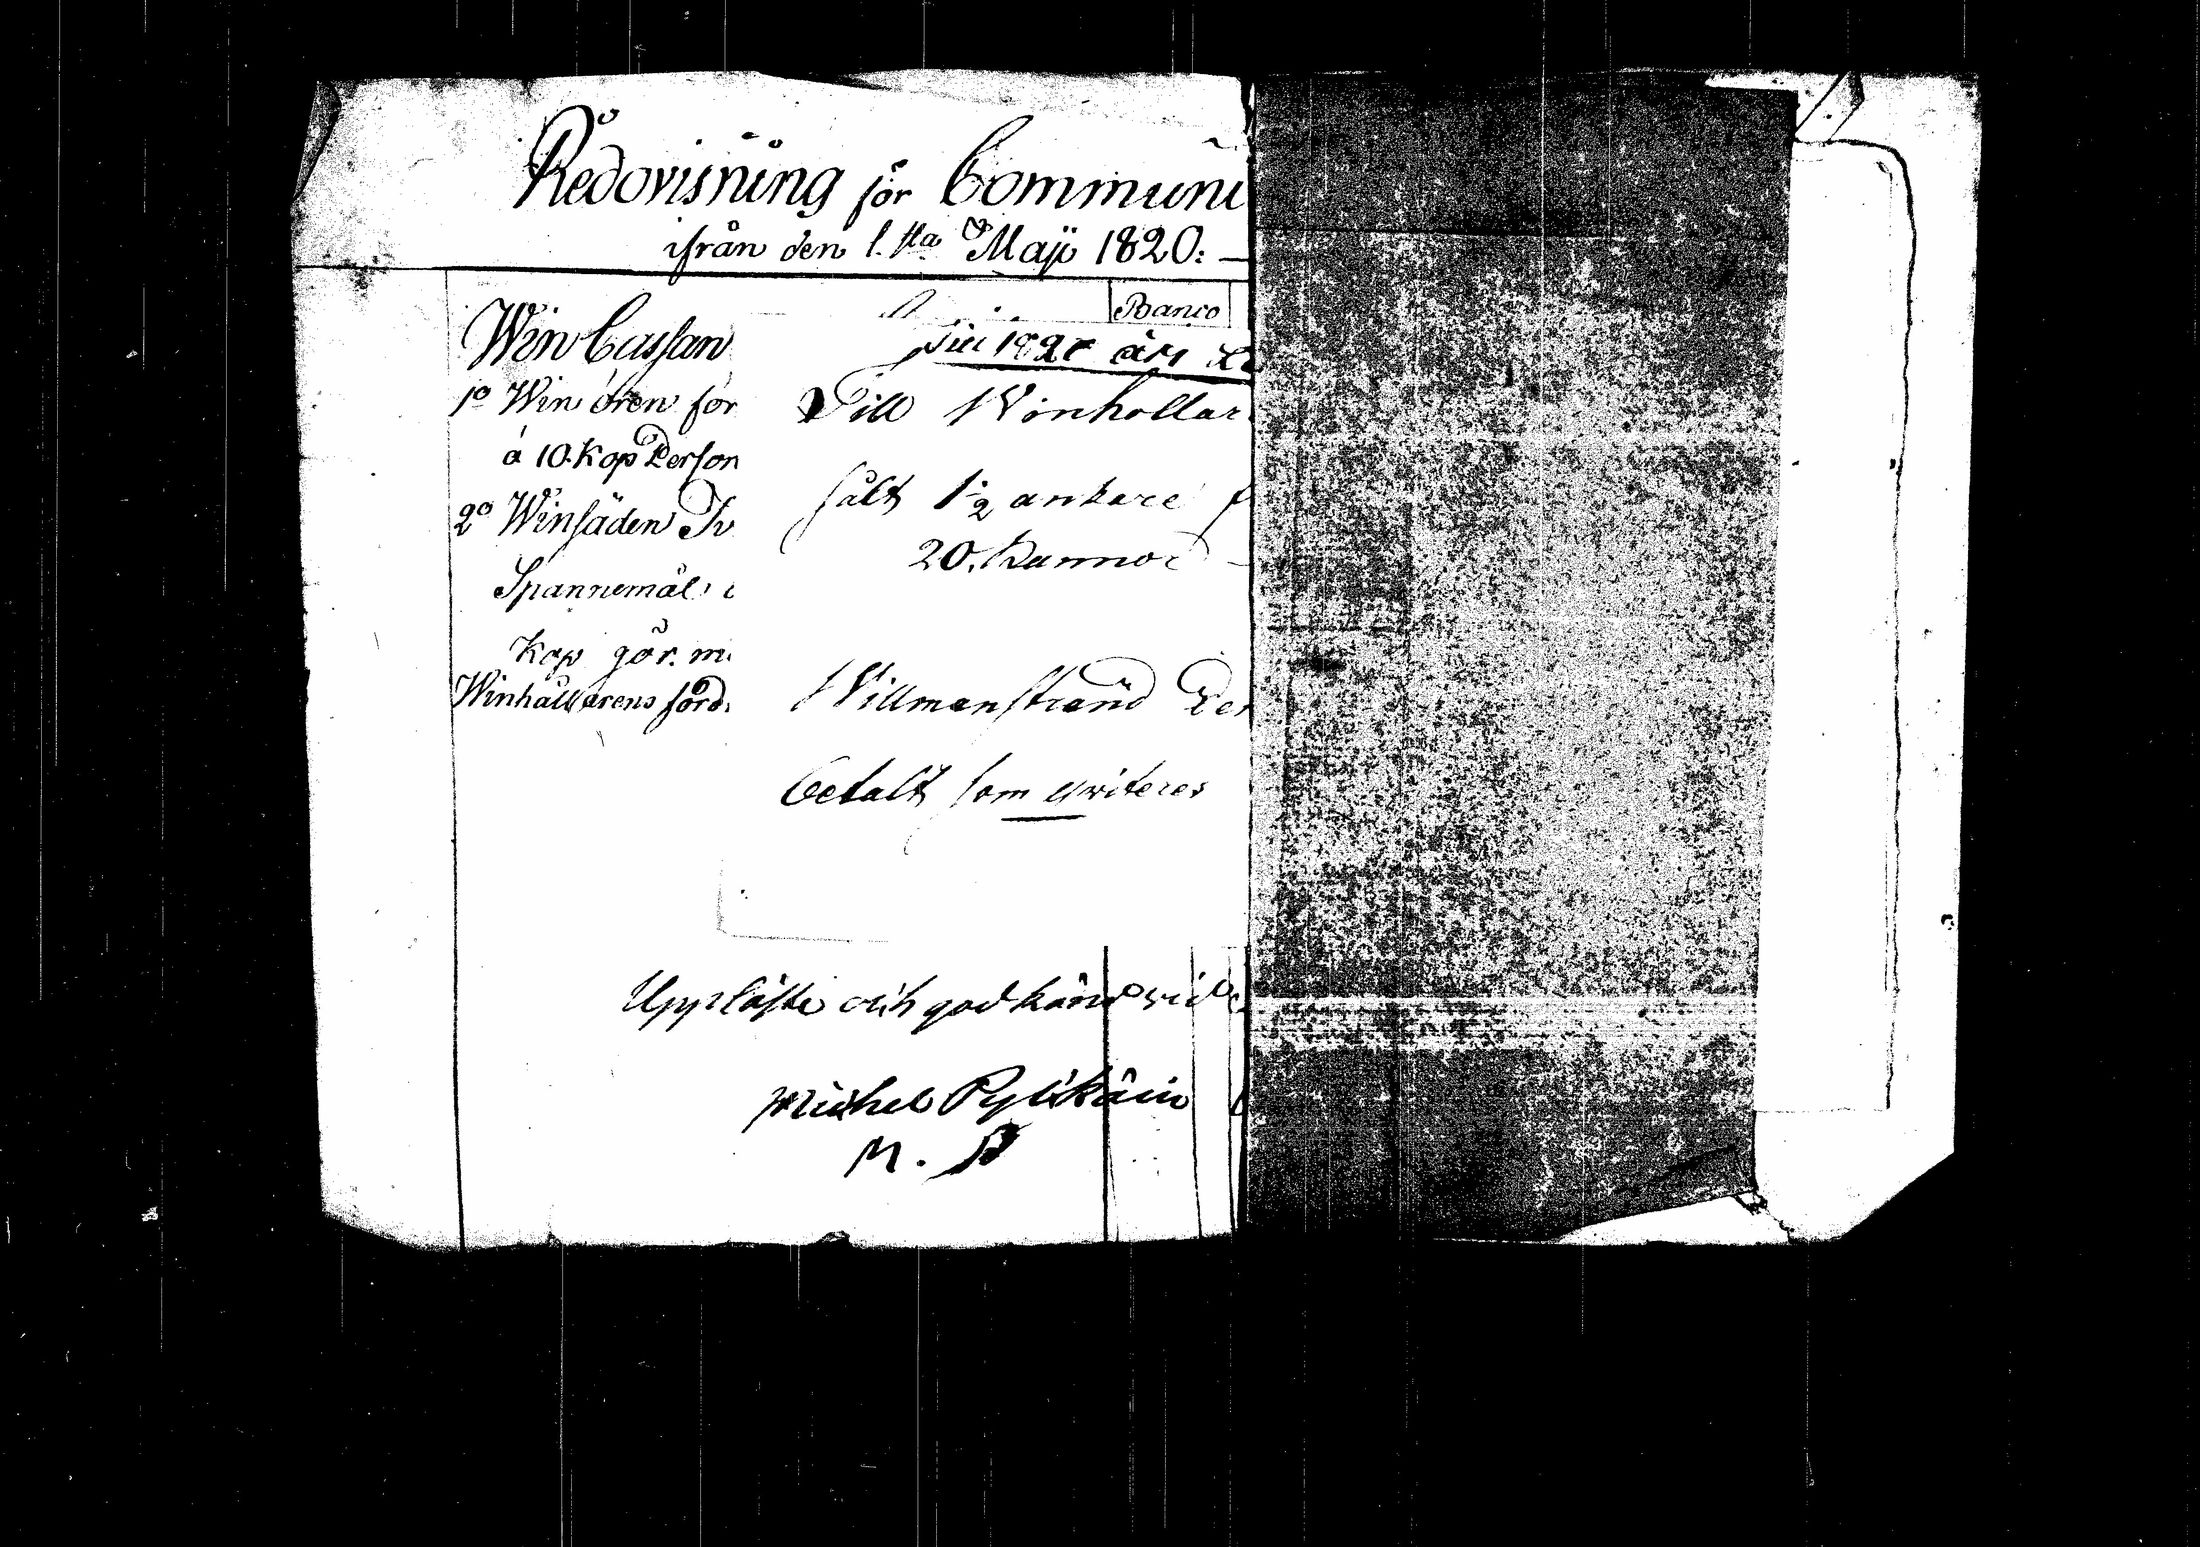 Redovisning för Communi
ifrån den 1.sta Maji 1820: —
Banco
Win Cassan
till 1820 års
1o Win ören för
à 10. Kop Person
2o Winsäden
Spannemål
Kop gör.
Winhållarens ford
Till Winhollar
sålt 1 1/2 ankare
20. Kannor
Willmanstrand Den
betalt som qwiteres
Uppläste och godkänd wid
Michel Pylkäin
M. P